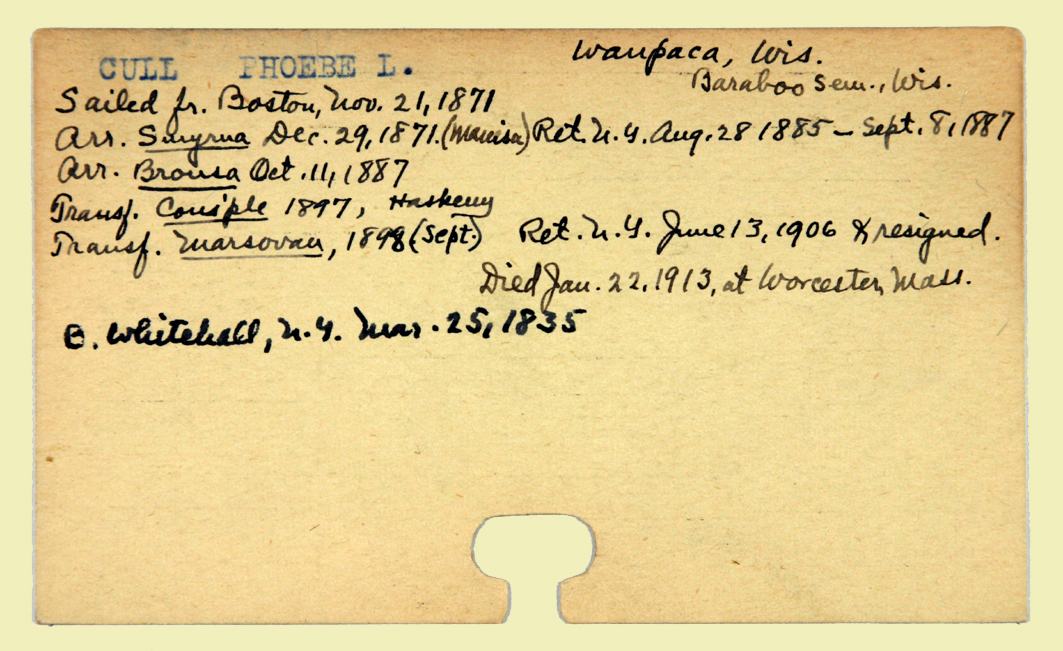 CULL PHOEBE L.
Waupaca, Wis.
Baraboo Sem., Wis.
Sailed fr. Boston, Nov. 21, 1871
Arr. Smyrna Dec. 29, 1871. (Manisa) Ret. N.Y. Aug. 28 1885 - Sept. 8, 1887
Arr. Brousa Oct. 11, 1887
Transf. Cons'ple 1897, Haskeuy
Transf. Marsovan, 1898 (Sept.) Ret. N.Y. June 13, 1906 & resigned.
Died Jan. 22, 1913, at Worcester, Mass.
B. Whitehall, N.Y. Mar. 25, 1835